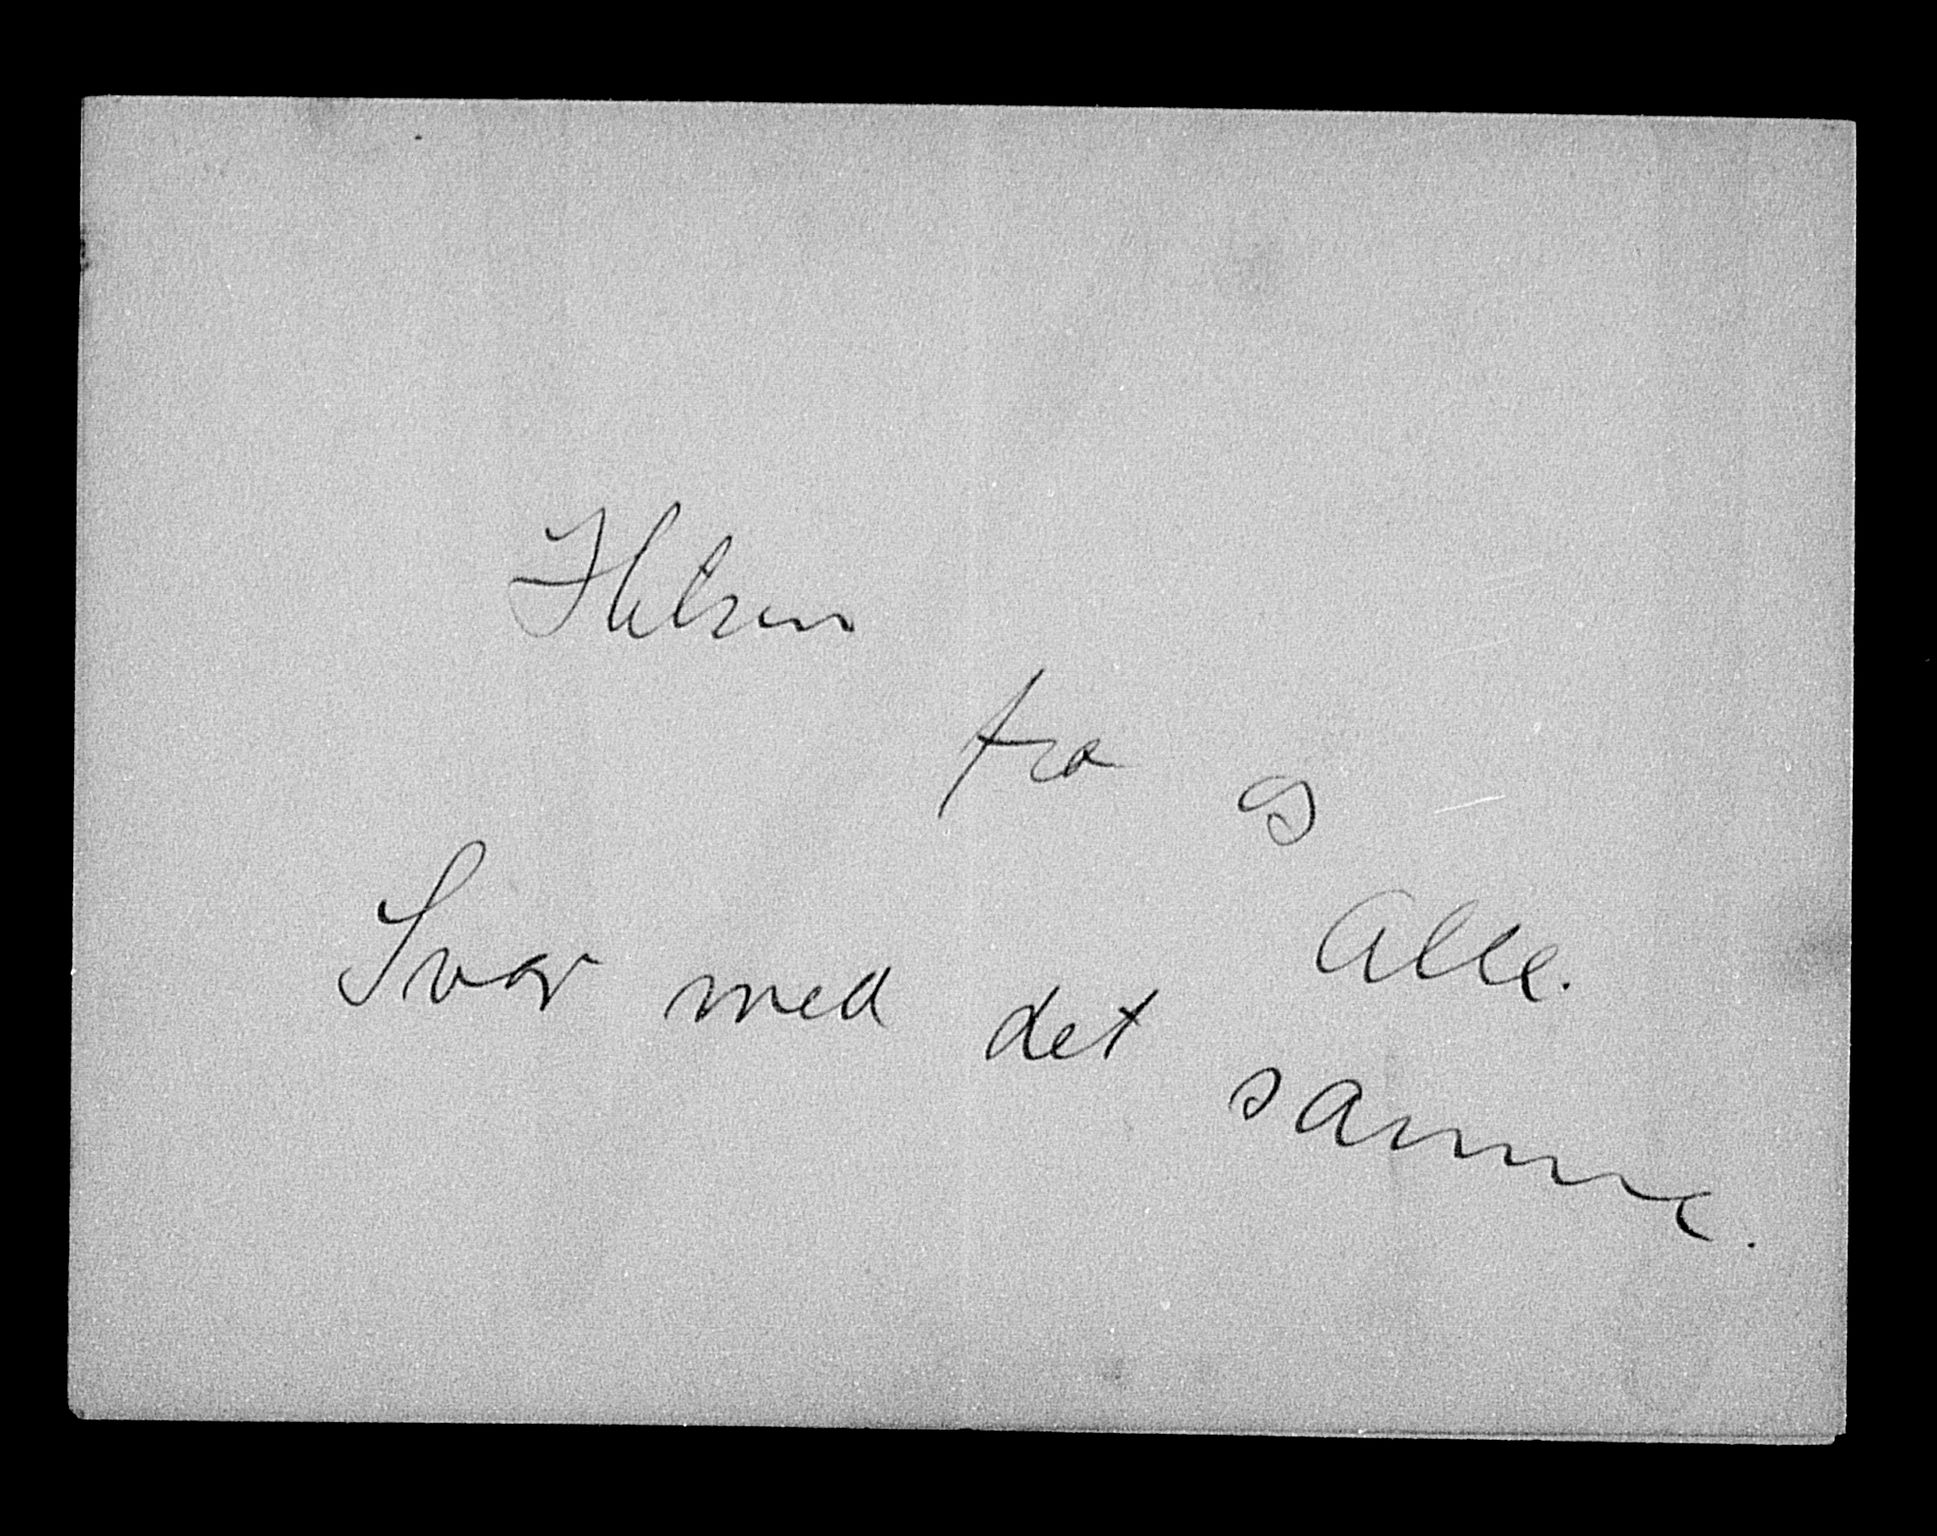 Helsen
fra os
Alle.
Svar med det samme.